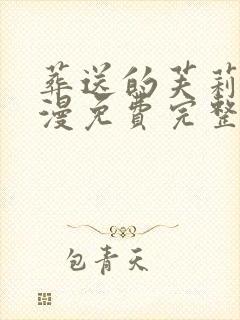 葬送的芙莉
漫免費完整
包青天